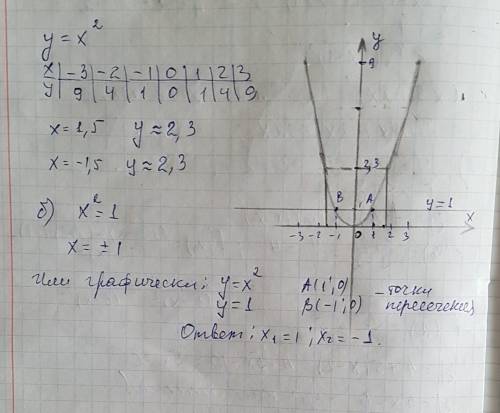 y = x²
x | -3 | -2 | -1 | 0 | 1 | 2 | 3
y | 9 | 4 | 1 | 0 | 1 | 4 | 9
x = 1,5 y ≈ 2,3
x = -1,5 y ≈ 2,3
б) x² = 1
x = ± 1
Или графически: y = x²
y = 1
A(1; 0)
B(-1; 0)
- точки
пересечения
Ответ: x₁ = 1; x₂ = -1.
y
9
2,3
B 1 A
y = 1
x
-3 -2 -1 0 1 2 3